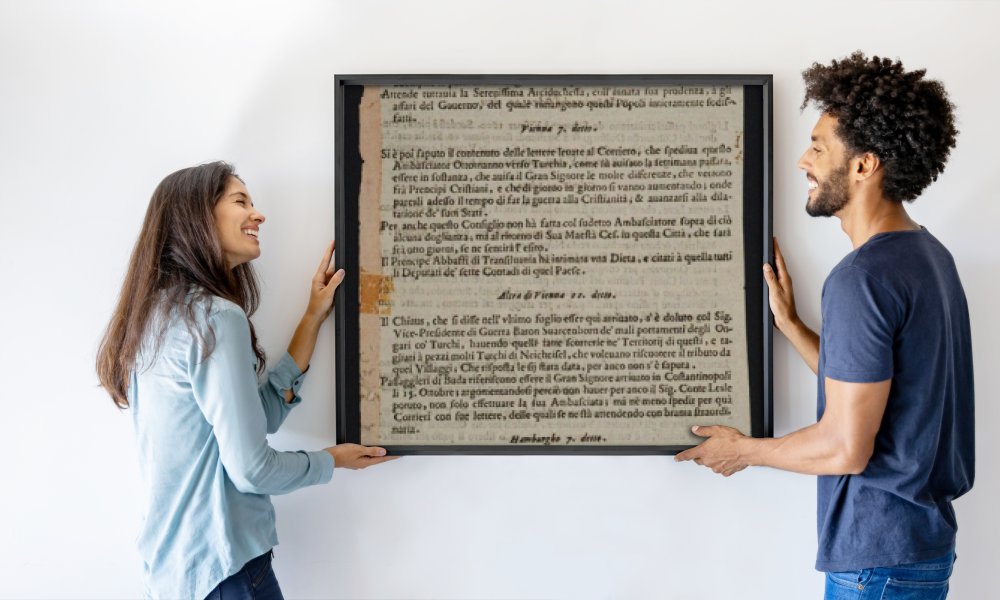 Attende tuttauia la Sereniſſima Arciducheſſa, coll' uſata ſua prudenza, à gli
affari del Gouerno, del quale rimangono queſti Popoli intieramente ſodiſ-
fatti.
Vienna 7. detto.
Si è poi ſaputo il contenuto delle lettere leuate al Corriero, che ſpediua queſto
Ambaſciatore Ottomanno verſo Turchia, come ſù auiſato la ſettimana paſſata,
eſſere in ſoſtanza, che auiſa il Gran Signore le molte differenze, che vertono
frà Prencipi Criſtiani, e che di giorno in giorno ſi vanno aumentando; onde
parergli adeſſo il tempo di far la guerra alla Criſtianità, & auanzarſi alla dila-
tatione de' ſuoi Stati.
Per anche queſto Conſiglio non hà fatta col ſudetto Ambaſciatore ſopra di ciò
alcuna doglianza, mà al ritorno di Sua Maeſtà Ceſ. in queſta Città, che ſarà
frà otto giorni, ſe ne ſentirà l' eſito.
Il Prencipe Abbaffi di Tranſiluania hà intimata vna Dieta, e citati à quella tutti
li Deputati de' ſette Contadi di quel Paeſe.
Altra di Vienna 11. detto.
Il Chiaus, che ſi diſſe nell' vltimo foglio eſſer qui arriuato, s'è doluto col Sig.
Vice-Preſidente di Guerra Baron Suarcenborn de' mali portamenti degli On-
gari co' Turchi, hauendo quelli fatte ſcorrerie ne' Territorij di queſti, e ta-
gliati à pezzi molti Turchi di Neicheiſel, che voleuano riſcuotere il tributo da
quei Villaggi, Che riſpoſta le ſij ſtata data, per anco non s'è ſaputa.
Paſſaggieri di Buda riferiſcono eſſere il Gran Signore arriuato in Coſtantinopoli
li 15. Ottobre; argomentandoſi perciò non hauer per anco il Sig. Conte Leslè
potuto, non ſolo effettuare la ſua Ambaſciata; mà nè meno ſpedir per quà
Corrieri con ſue lettere, delle quali ſe ne ſtà attendendo con brama ſtraordi-
naria.
Hamburgho 7. detto.